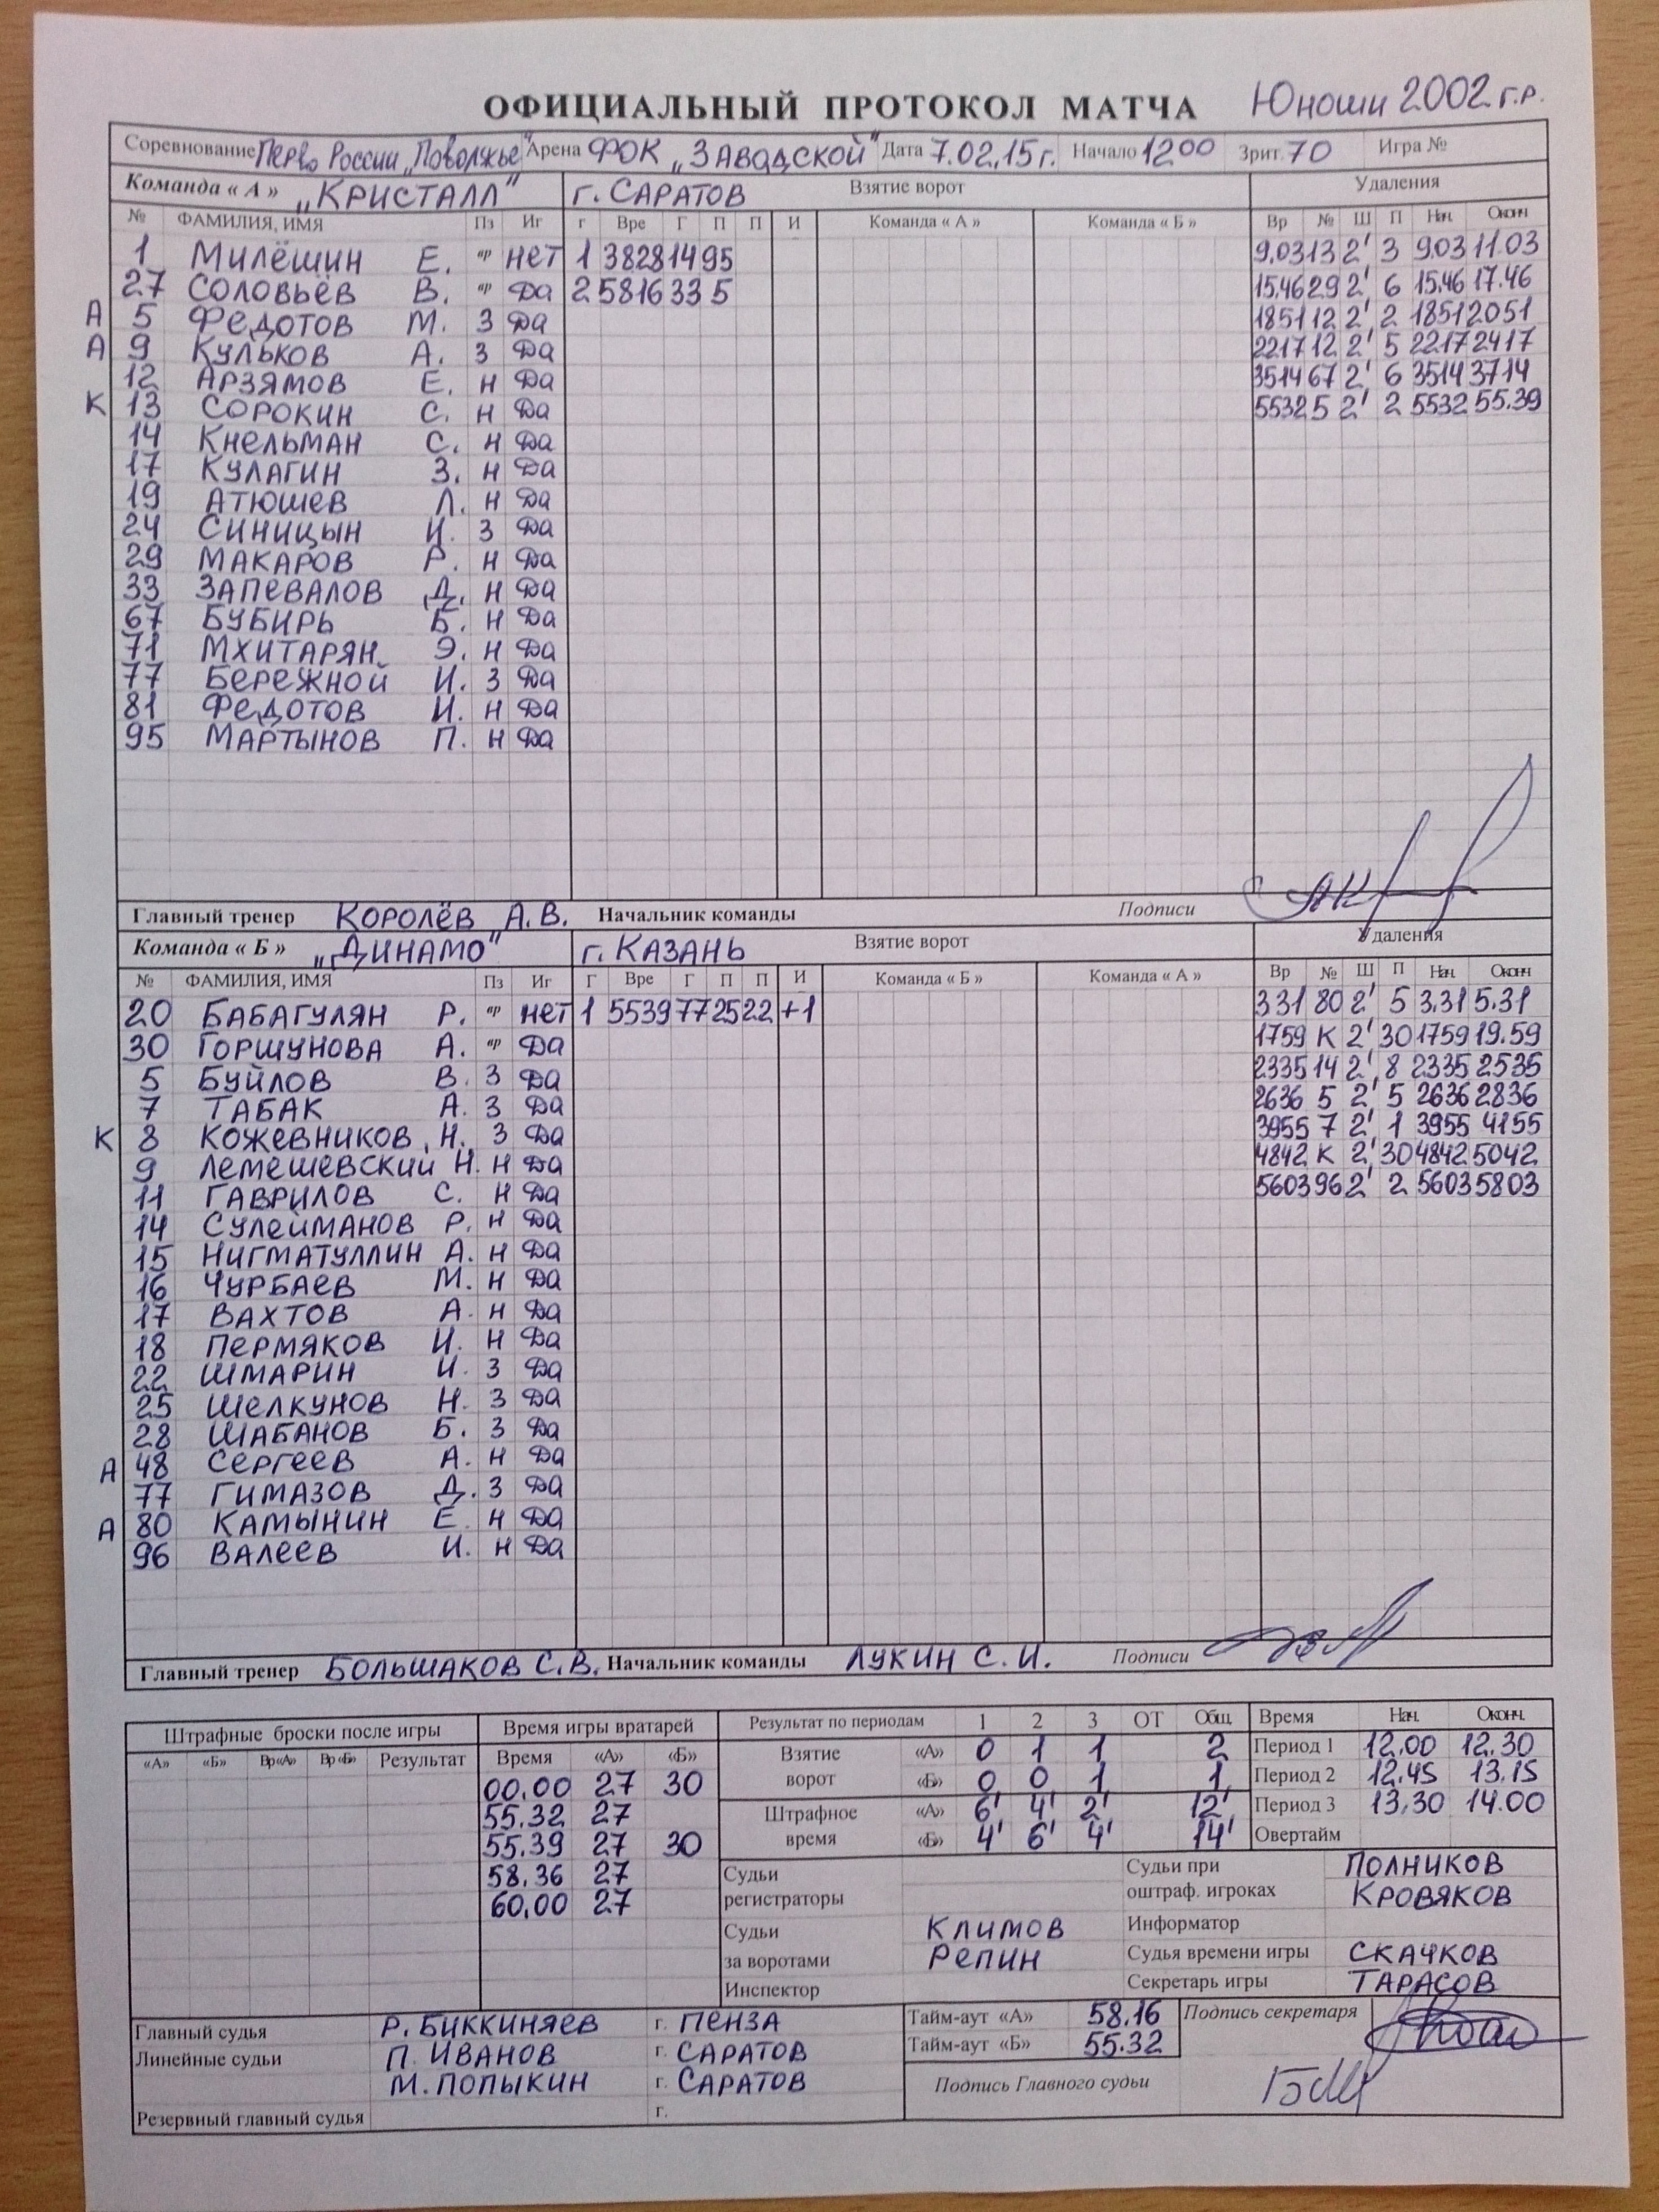 ОФИЦИАЛЬНЫЙ ПРОТОКОЛ МАТЧА Юноши 2002 г.р.
Соревнование Перво России „Поволжье" Арена ФОК „Заводской" Дата 7.02.15 г. Начало 12 00 Зрит. 70 Игра №
Команда « А » „КРИСТАЛЛ" г. САРАТОВ Взятие ворот Удаления
№ ФАМИЛИЯ, ИМЯ Пз Иг г Вре Г П П И Команда « А » Команда « Б » Вр № Ш П Нач. Оконч
1 МИЛЁШИН Е. вр нет 1 3828 14 95 9.03 13 2' 3 9.03 11.03
27 СОЛОВЬЁВ В. вр Да 2 5816 33 5 15.46 29 2' 6 15.46 17.46
А 5 ФЕДОТОВ М. З Да 1851 12 2' 2 1851 2051
А 9 КУЛЬКОВ А. З Да 2217 12 2' 5 2217 2417
12 АРЗЯМОВ Е. Н Да 3514 67 2' 6 3514 3714
К 13 СОРОКИН С. Н Да 5532 5 2' 2 5532 55.39
14 КНЕЛЬМАН С. Н Да
17 КУЛАГИН З. Н Да
19 АТЮШЕВ Л. Н Да
24 СИНИЦЫН И. З Да
29 МАКАРОВ Р. Н Да
33 ЗАПЕВАЛОВ Д. Н Да
67 БУБИРЬ Б. Н Да
71 МХИТАРЯН Э. Н Да
77 БЕРЕЖНОЙ И. З Да
81 ФЕДОТОВ И. Н Да
95 МАРТЫНОВ П. Н Да
Главный тренер КОРОЛЁВ А.В. Начальник команды Подписи
Команда « Б » „ДИНАМО" г. КАЗАНЬ Взятие ворот Удаления
№ ФАМИЛИЯ, ИМЯ Пз Иг Г Вре Г П П И Команда « Б » Команда « А » Вр № Ш П Нач. Оконч
20 БАБАГУЛЯН Р. вр нет 1 5539 77 25 22 +1 331 80 2' 5 3.31 5.31
30 ГОРШУНОВА А. вр Да 1759 К 2' 30 1759 19.59
5 БУЙЛОВ В. З Да 2335 14 2' 8 2335 2535
7 ТАБАК А. З Да 2636 5 2' 5 2636 2836
К 8 КОЖЕВНИКОВ Н. З Да 3955 7 2' 1 3955 4155
9 ЛЕМЕШЕВСКИЙ Н. Н Да 4842 К 2' 30 4842 5042
11 ГАВРИЛОВ С. Н Да 5603 96 2' 2 5603 5803
14 СУЛЕЙМАНОВ Р. Н Да
15 НИГМАТУЛЛИН А. Н Да
16 ЧУРБАЕВ М. Н Да
17 ВАХТОВ А. Н Да
18 ПЕРМЯКОВ И. Н Да
22 ШМАРИН И. З Да
25 ШЕЛКУНОВ Н. З Да
28 ШАБАНОВ Б. З Да
А 48 СЕРГЕЕВ А. Н Да
77 ГИМАЗОВ Д. З Да
А 80 КАМЫНИН Е. Н Да
96 ВАЛЕЕВ И. Н Да
Главный тренер БОЛЬШАКОВ С.В. Начальник команды ЛУКИН С.И. Подписи
Штрафные броски после игры Время игры вратарей Результат по периодам 1 2 3 ОТ Общ. Время Нач. Оконч.
«А» «Б» Вр«А» Вр«Б» Результат Время «А» «Б» Взятие «А» 0 1 1 2 Период 1 12.00 12.30
00.00 27 30 ворот «Б» 0 0 1 1 Период 2 12.45 13.15
55.32 27 Штрафное «А» 6' 4' 2' 12' Период 3 13.30 14.00
55.39 27 30 время «Б» 4' 6' 4' 14' Овертайм
58.36 27 Судьи Судьи при ПОЛНИКОВ
60.00 27 регистраторы оштраф. игроках КРОВЯКОВ
Судьи КЛИМОВ Информатор
за воротами РЕПИН Судья времени игры СКАЧКОВ
Инспектор Секретарь игры ТАРАСОВ
Главный судья Р. БИККИНЯЕВ г. ПЕНЗА Тайм-аут «А» 58.16 Подпись секретаря
Линейные судьи П. ИВАНОВ г. САРАТОВ Тайм-аут «Б» 55.32
М. ПОПЫКИН г. САРАТОВ Подпись Главного судьи
Резервный главный судья г.